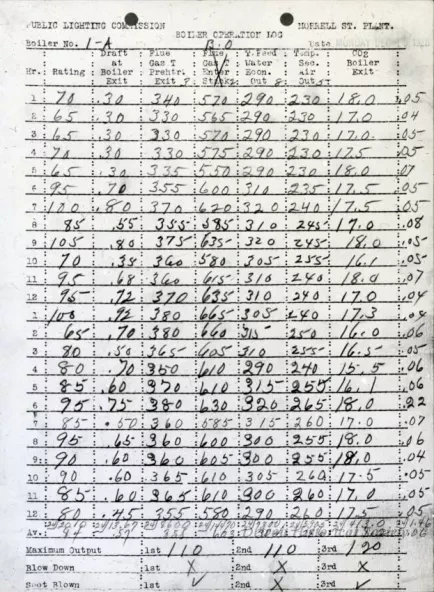 PUBLIC LIGHTING COMMISSION MORRELL ST. PLANT.
BOILER OPERATION LOG
Boiler No. 1-A B.O Date
Draft Flue Flue Y.Feed Temp. CO2
at Gas T Gas T Water Sec. Boiler
Hr. Rating Boiler Prehtr. Enter Econ. Air Exit
Exit Exit F. Stk. Out Out
1 70 .30 340 570 290 230 18.0 .05
2 65 .30 330 565 290 230 17.0 .04
3 65 .30 330 550 290 230 17.0 .05
4 70 .30 330 575 290 230 17.5 .05
5 65 .30 335 550 290 230 18.0 .07
6 95 .70 355 600 310 235 17.5 .05
7 100 .80 370 620 320 240 17.5 .05
8 85 .55 355 585 310 245 17.0 .08
9 105 .80 375 635 320 245 18.0 .05
10 70 .35 360 580 305 255 16.1 .05
11 95 .68 360 615 310 240 18.0 .07
12 95 .72 370 635 310 240 17.0 .04
1 100 .92 380 665 305 240 17.3 .04
2 65 .70 380 660 315 250 16.0 .06
3 80 .50 365 605 310 255 16.5 .05
4 80 .70 350 610 290 240 15.5 .06
5 85 .60 370 610 315 255 16.1 .06
6 95 .75 380 630 320 265 18.0 .22
7 85 .50 360 585 315 260 17.0 .07
8 95 .65 360 600 300 255 18.0 .06
9 90 .60 360 605 300 255 18.0 .04
10 90 .60 365 610 305 260 17.5 .05
11 85 .60 365 610 300 260 17.0 .05
12 80 .45 355 580 290 260 17.5 .05
Av.
Maximum Output 1st 110 2nd 110 3rd 120
Blow Down 1st X 2nd X 3rd X
Soot Blown 1st ✓ 2nd X 3rd ✓